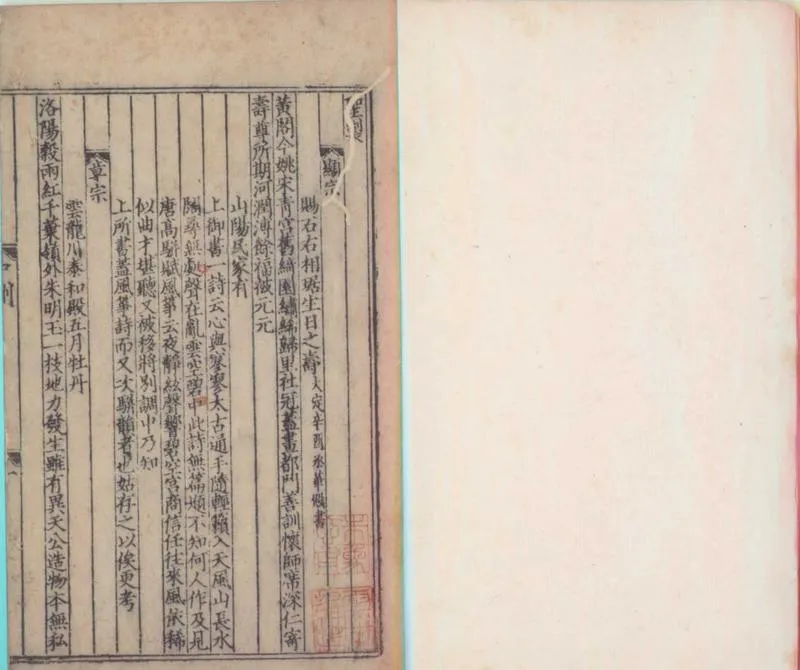 聖製
顯宗
賜石右相琚生日之壽 大定辛酉承華殿書
黃閣今姚宋青宮舊綺園繡絺歸里社冠蓋畫都門善訓懷師席深仁寄
壽尊所期河潤溥餘福被元元
山陽民家有
上御書一詩云心與寥寥太古通手隨輕籟入天風山長水
闊尋無處聲在亂雲空碧中此詩無篇題不知何人作及見
唐高駢賦風箏云夜靜絃聲響碧空宮商信任往來風依稀
似曲才堪聽又被移將別調中乃知
上所書蓋風箏詩而又次駢韻者也姑存之以俟更考
章宗
雲龍川泰和殿五月牡丹
洛陽穀雨紅千葉嶺外朱明玉一枝地力發生雖有異天公造物本無私